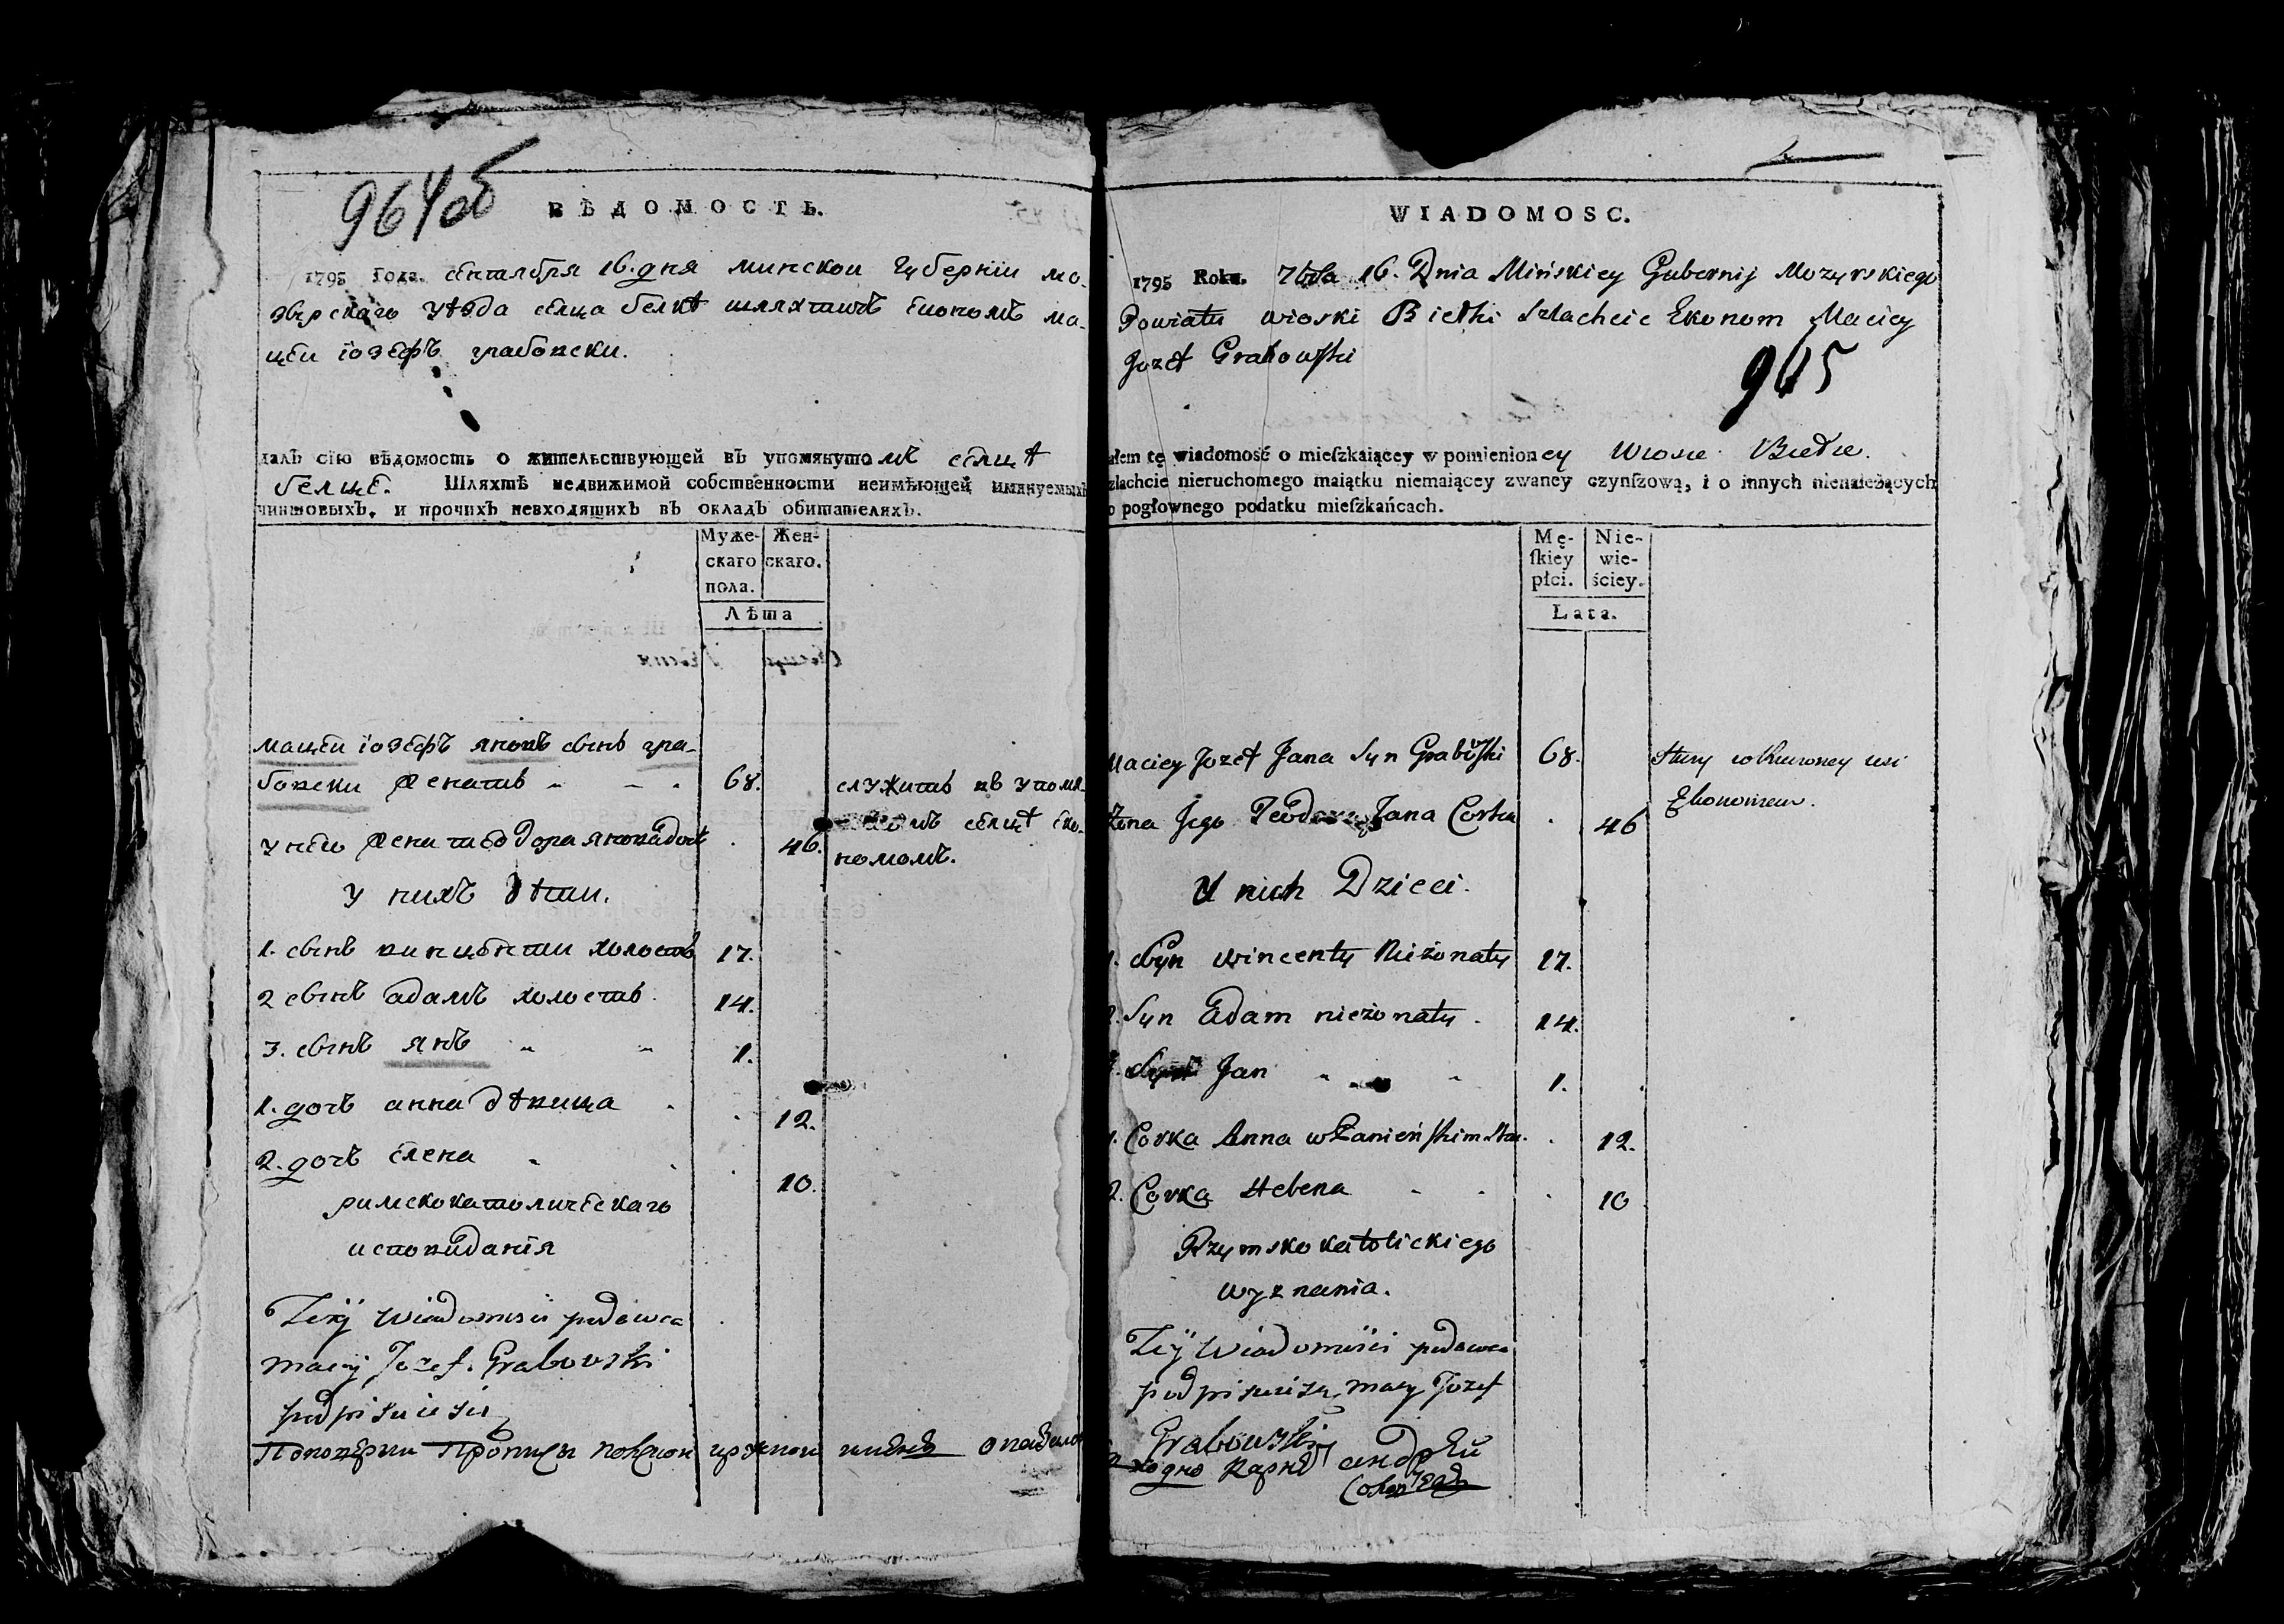 964об
ВѢДОМОСТЬ.
1795 Года. сентября 16. дня минской губернїи мо-
зырскаго уѣзда селца белкѣ шляхтичъ економъ ма-
цей їозефъ грабовски.
далъ сїю вѣдомость о жительствующей въ упомянутомъ селцѣ
белце. Шляхтѣ недвижимой собственности неимѣющей имянуемыхъ
чиншовыхъ, и прочихъ невходящихъ въ окладъ обитателяхъ.
Муже- Жен-
скаго скаго.
пола.
Лѣта
мацей їозефъ яновъ сынъ гра-
бовски женатъ 68. служитъ въ упомя-
селцѣ еко-
у него жена теодора 46. номомъ.
у нихъ дѣти.
1. сынъ винценти холостъ 17.
2 сынъ адамъ холостъ 14.
3. сынъ янъ 1.
1. дочь анна дѣвица 12.
2. дочь елена 10.
римскокатолическаго
исповѣданїя
Tey Wiadomosci podawca
Maciy Jozef. Grabowski
podpisuie sie
WIADOMOSC.
1795 Roku. 7bra 16. Dnia Mińskiey Gubernij Mozyrskiego
Powiatu wioski Biełki Szlachcic Ekonom Maciey
Jozef Grabowski
965
ałem tę wiadomość o mieſzkaiącey w pomienioney Wiosce
zlachcie nieruchomego maiątku niemaiącey zwaney czynſzową, i o innych nienależących
o pogłownego podatku mieſzkańcach.
Mę- Nie-
ſkiey wie-
płci. ściey.
Lata.
Maciey Jozef Jana Syn Grabowski 68.
Ekonomem.
Żona Jego Teodora Jana Corka 46
U nich Dzieci.
1. Syn wincenty Nieżonaty 17.
2. Syn Adam nieżonaty. 14.
3. Syn Jan 1.
1. Corka Anna w Panieńskim 12.
2. Corka Helena 10
Rzymsko katolickiego
wyznania.
Tey Wiadomości podawca
podpisuie sie Maciy Jozef
Grabowski
андрей